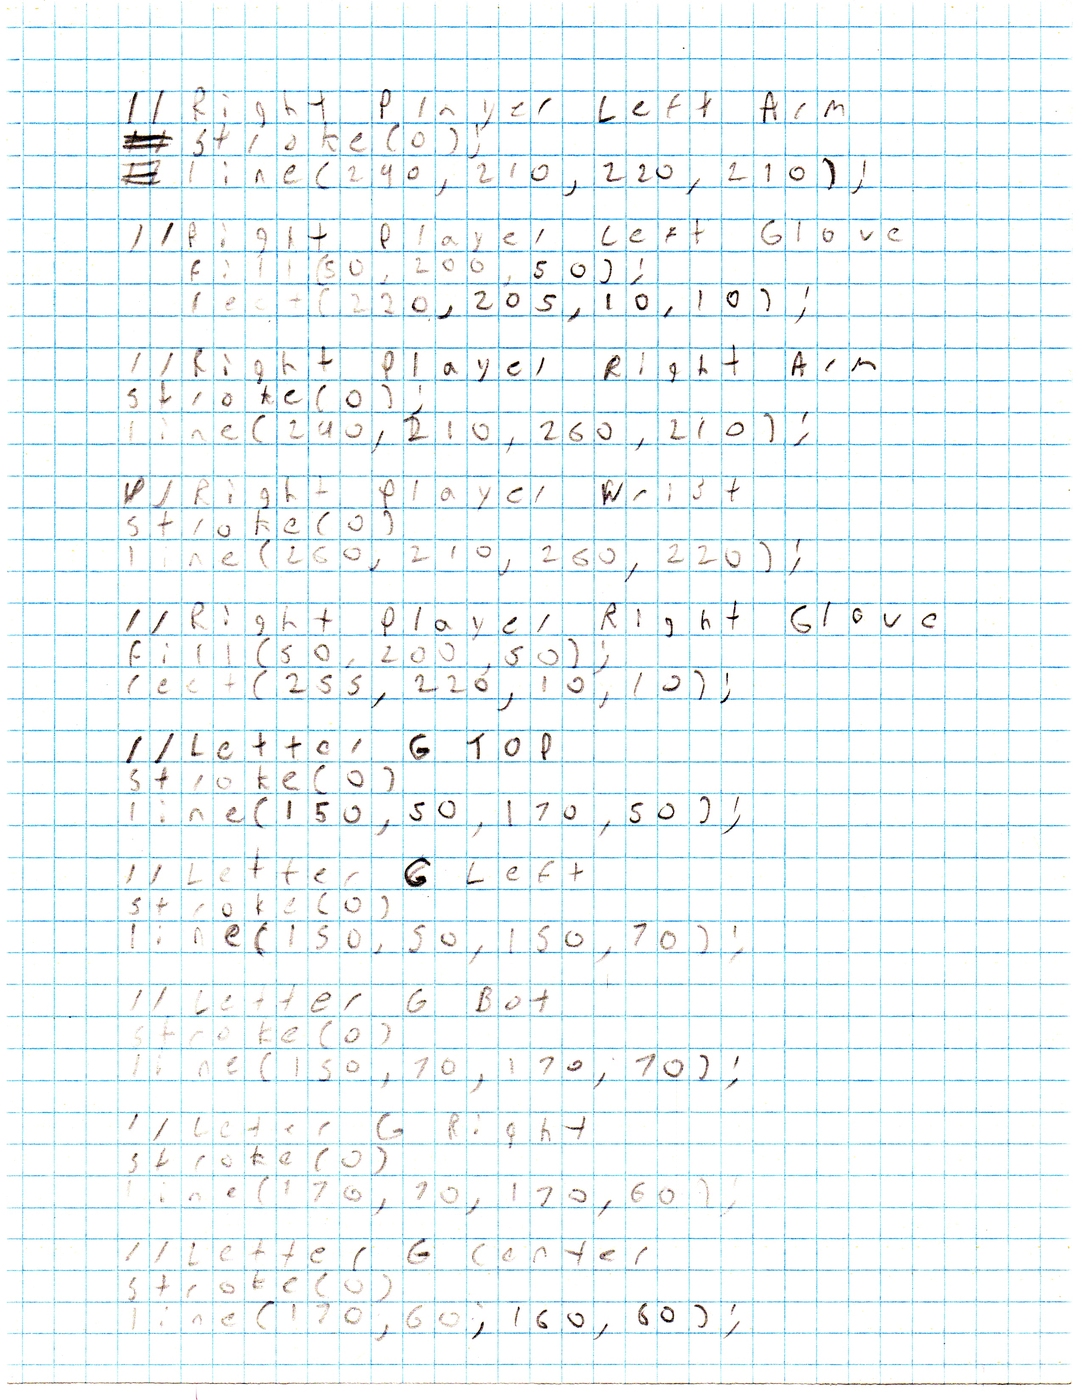 // Right Player Left Arm
stroke(0);
line(240, 210, 220, 210);
//Right Player Left Glove
fill(50, 200, 50);
rect(220, 205, 10, 10);
//Right Player Right Arm
stroke(0);
line(240, 210, 260, 210);
//Right Player Wrist
stroke(0)
line(260, 210, 260, 220);
//Right Player Right Glove
fill(50, 200, 50);
rect(255, 220, 10, 10);
//Letter G TOP
stroke(0)
line(150, 50, 170, 50);
//Letter G Left
stroke(0)
line(150, 50, 150, 70);
//Letter G Bot
stroke(0)
line(150, 70, 170, 70);
//Letter G Right
stroke(0)
line(170, 70, 170, 60);
//Letter G Center
stroke(0)
line(170, 60, 160, 60);